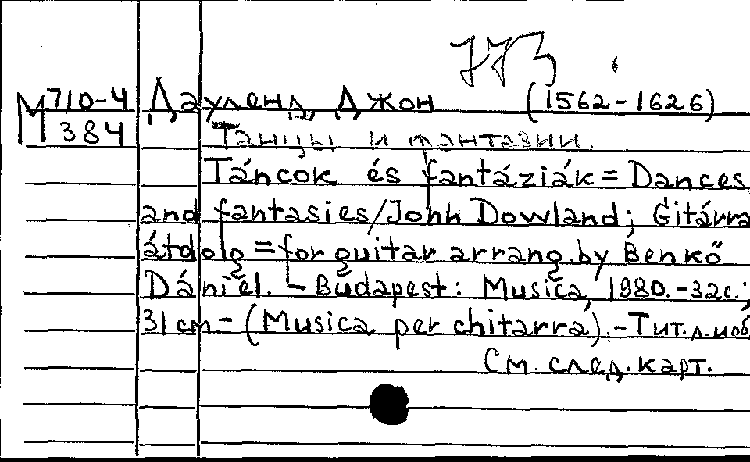 773
М 710-4 Дауленд, Джон (1562-1626)
384 Танцы и фантазии.
Táncok és fantáziák = Dances
and fantasies/John Dowland; Gitárra
átdolg = for guitar arrang. by Benkő
Dániel. - Budapest: Musica, 1980.-32с.;
31 cm - (Musica per chitarra).-Тит.л.и об
См. след. карт.